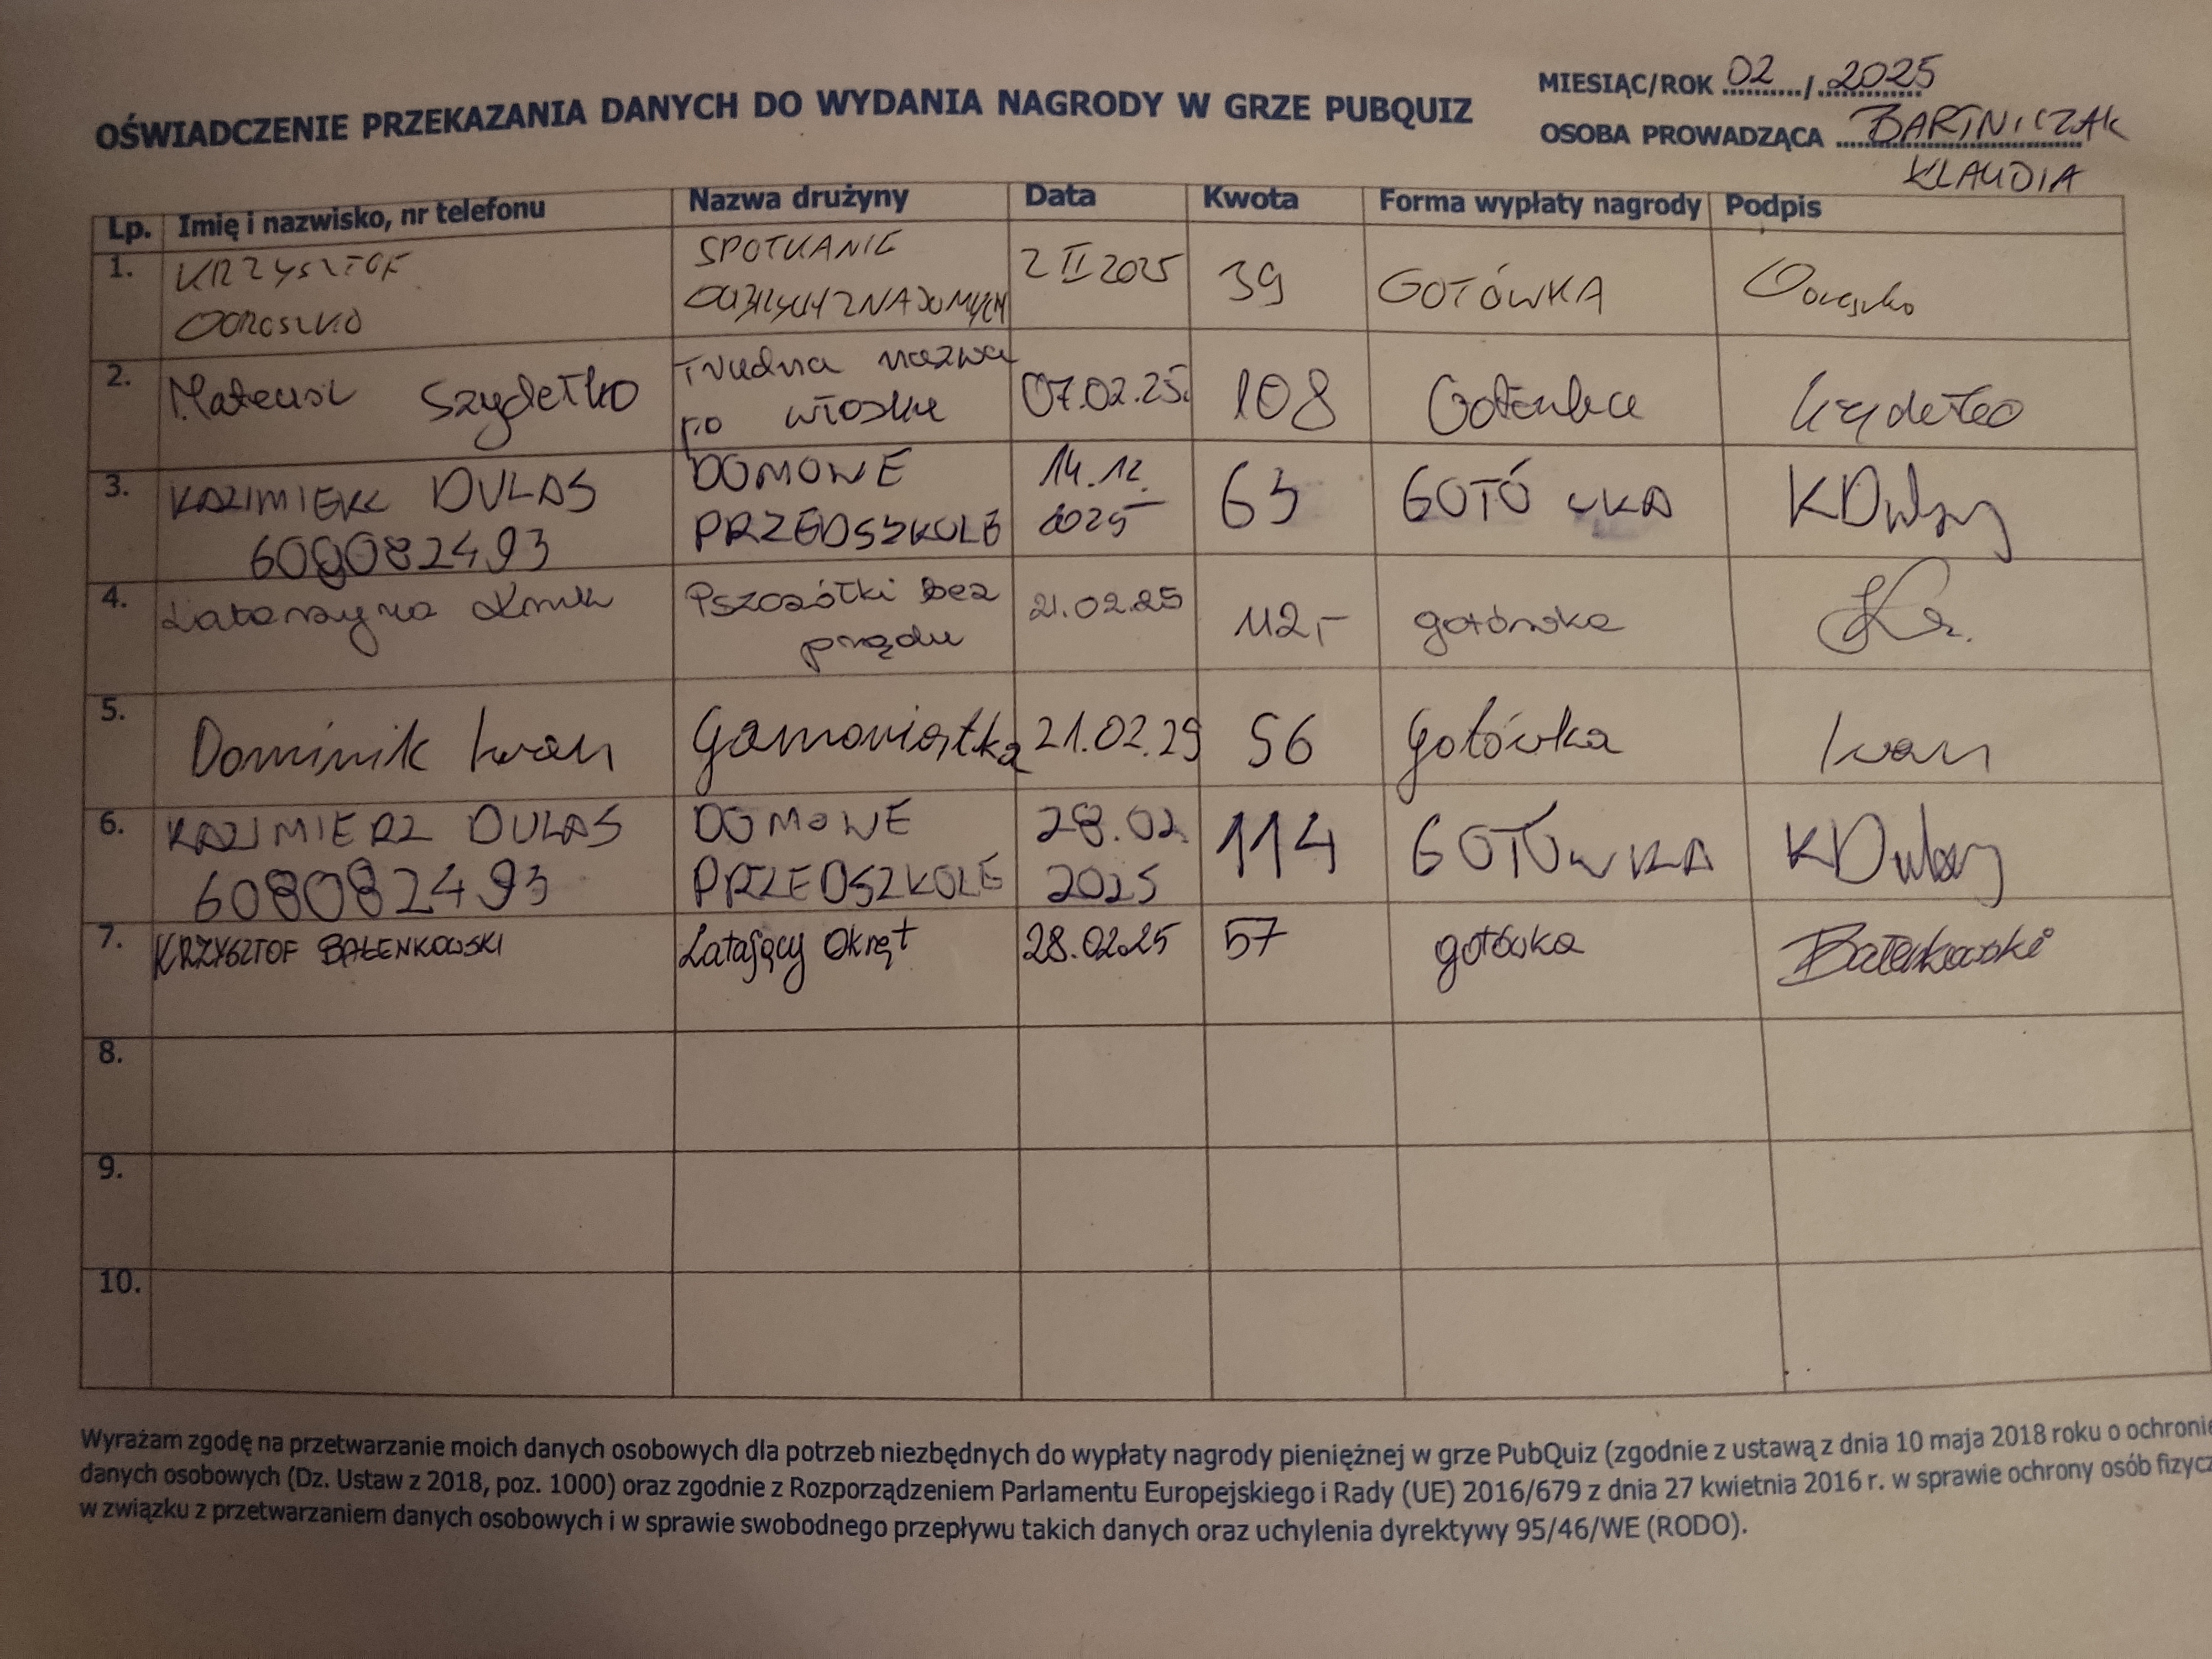 OŚWIADCZENIE PRZEKAZANIA DANYCH DO WYDANIA NAGRODY W GRZE PUBQUIZ
MIESIĄC/ROK 02 / 2025
OSOBA PROWADZĄCA BARTNICZAK
KLAUDIA
Lp. Imię i nazwisko, nr telefonu Nazwa drużyny Data Kwota Forma wypłaty nagrody Podpis
1. KRZYSZTOF SPOTKANIE 2 II 2025 39 GOTÓWKA
2. Mateusz Szydełko Trudna nazwa 07.02.25. 108 Gotówka
po włosku
3. KAZIMIERZ DULAS DOMOWE 14.12. 63 GOTÓWKA KDulas
PRZEDSZKOLE 2025
4. Katarzyna Pszczółki bez 21.02.25 112,- gotówka
prądu
5. Dominik Iwan 21.02.25 56 Gotówka Iwan
6. KAZIMIERZ DULAS DOMOWE 28.02. 114 GOTÓWKA KDulas
608082493 PRZEDSZKOLE 2025
7. KRZYSZTOF BAŁENKOWSKI Latający Okręt 28.02.25 57 gotówka Bałenkowski
8.
9.
10.
Wyrażam zgodę na przetwarzanie moich danych osobowych dla potrzeb niezbędnych do wypłaty nagrody pieniężnej w grze PubQuiz (zgodnie z ustawą z dnia 10 maja 2018 roku o ochronie
danych osobowych (Dz. Ustaw z 2018, poz. 1000) oraz zgodnie z Rozporządzeniem Parlamentu Europejskiego i Rady (UE) 2016/679 z dnia 27 kwietnia 2016 r. w sprawie ochrony osób fizycz
w związku z przetwarzaniem danych osobowych i w sprawie swobodnego przepływu takich danych oraz uchylenia dyrektywy 95/46/WE (RODO).